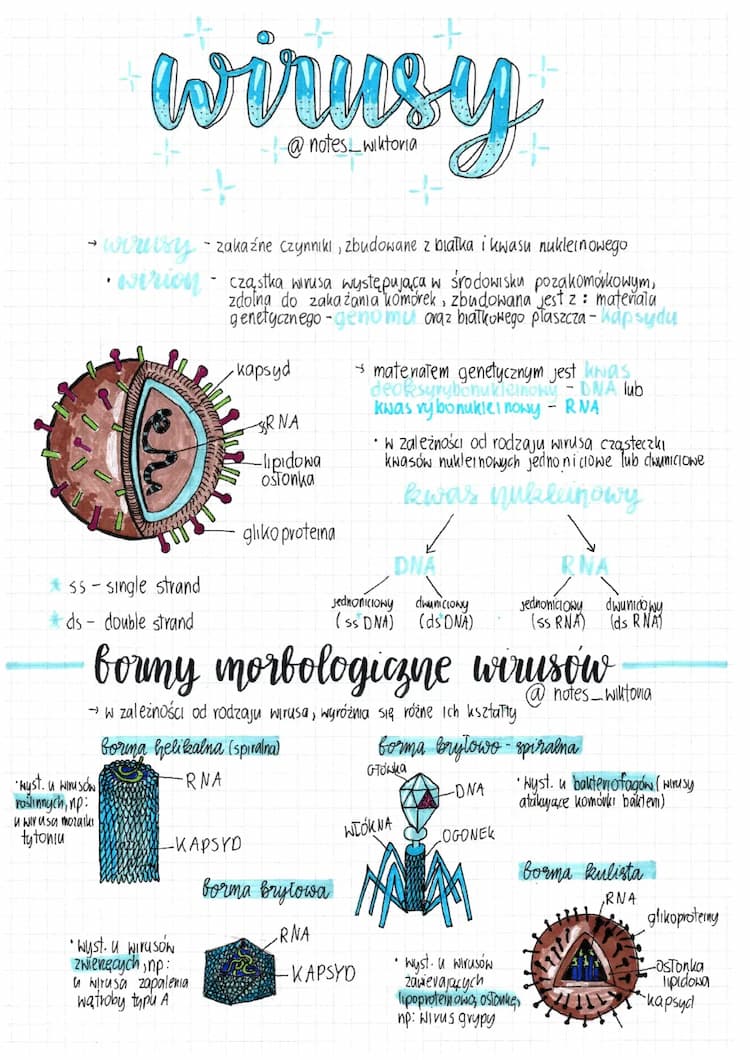 wirusy
@ notes_wiktoria
→ wirusy - zakaźne czynniki, zbudowane z białka i kwasu nukleinowego
• wirion - cząstka wirusa występująca w środowisku pozakomórkowym,
zdolna do zakażania komórek, zbudowana jest z: materiału
genetycznego - genomu oraz białkowego płaszcza - kapsydu
kapsyd
ssRNA
lipidowa
osłonka
glikoproteina
* ss - single strand
* ds - double strand
→ materiałem genetycznym jest kwas
deoksyrybonukleinowy - DNA lub
kwas rybonukleinowy - RNA
• w zależności od rodzaju wirusa cząsteczki
kwasów nukleinowych jednoniciowe lub dwuniciowe
kwas nukleinowy
DNA
RNA
jednoniciowy
(ss DNA)
dwuniciowy
(ds DNA)
jednoniciowy
(ss RNA)
dwuniciowy
(ds RNA)
formy morfologiczne wirusów
@ notes_wiktoria
→ w zależności od rodzaju wirusa, wyróżnia się różne ich kształty
forma helikalna (spiralna)
• wyst. u wirusów
roślinnych, np:
u wirusa mozaiki
tytoniu
RNA
KAPSYD
forma bryłowo - spiralna
GŁÓWKA
DNA
WŁÓKNA
OGONEK
• wyst. u bakteriofagów (wirusy
atakujące komórki bakterii)
forma bryłowa
• wyst. u wirusów
zwierzęcych, np:
u wirusa zapalenia
wątroby typu A
RNA
KAPSYD
forma kulista
• wyst. u wirusów
zawierających
lipoproteinową osłonkę,
np: wirus grypy
RNA
glikoproteiny
osłonka
lipidowa
kapsyd